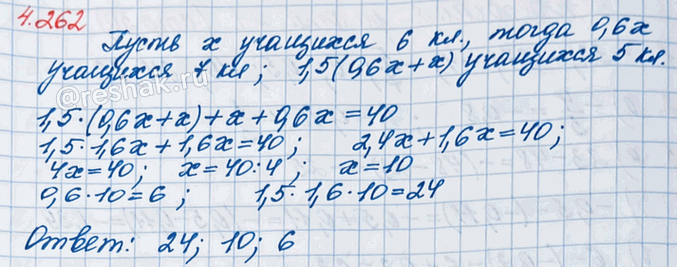 4.262
Пусть x учащихся 6 кл., тогда 0,6x
учащихся 7 кл; 1,5(0,6x+x) учащихся 5 кл.
@reshak.ru
1,5·(0,6x+x)+x+0,6x=40
1,5·1,6x+1,6x=40; 2,4x+1,6x=40;
4x=40; x=40:4; x=10
0,6·10=6; 1,5·1,6·10=24
Ответ: 24; 10; 6